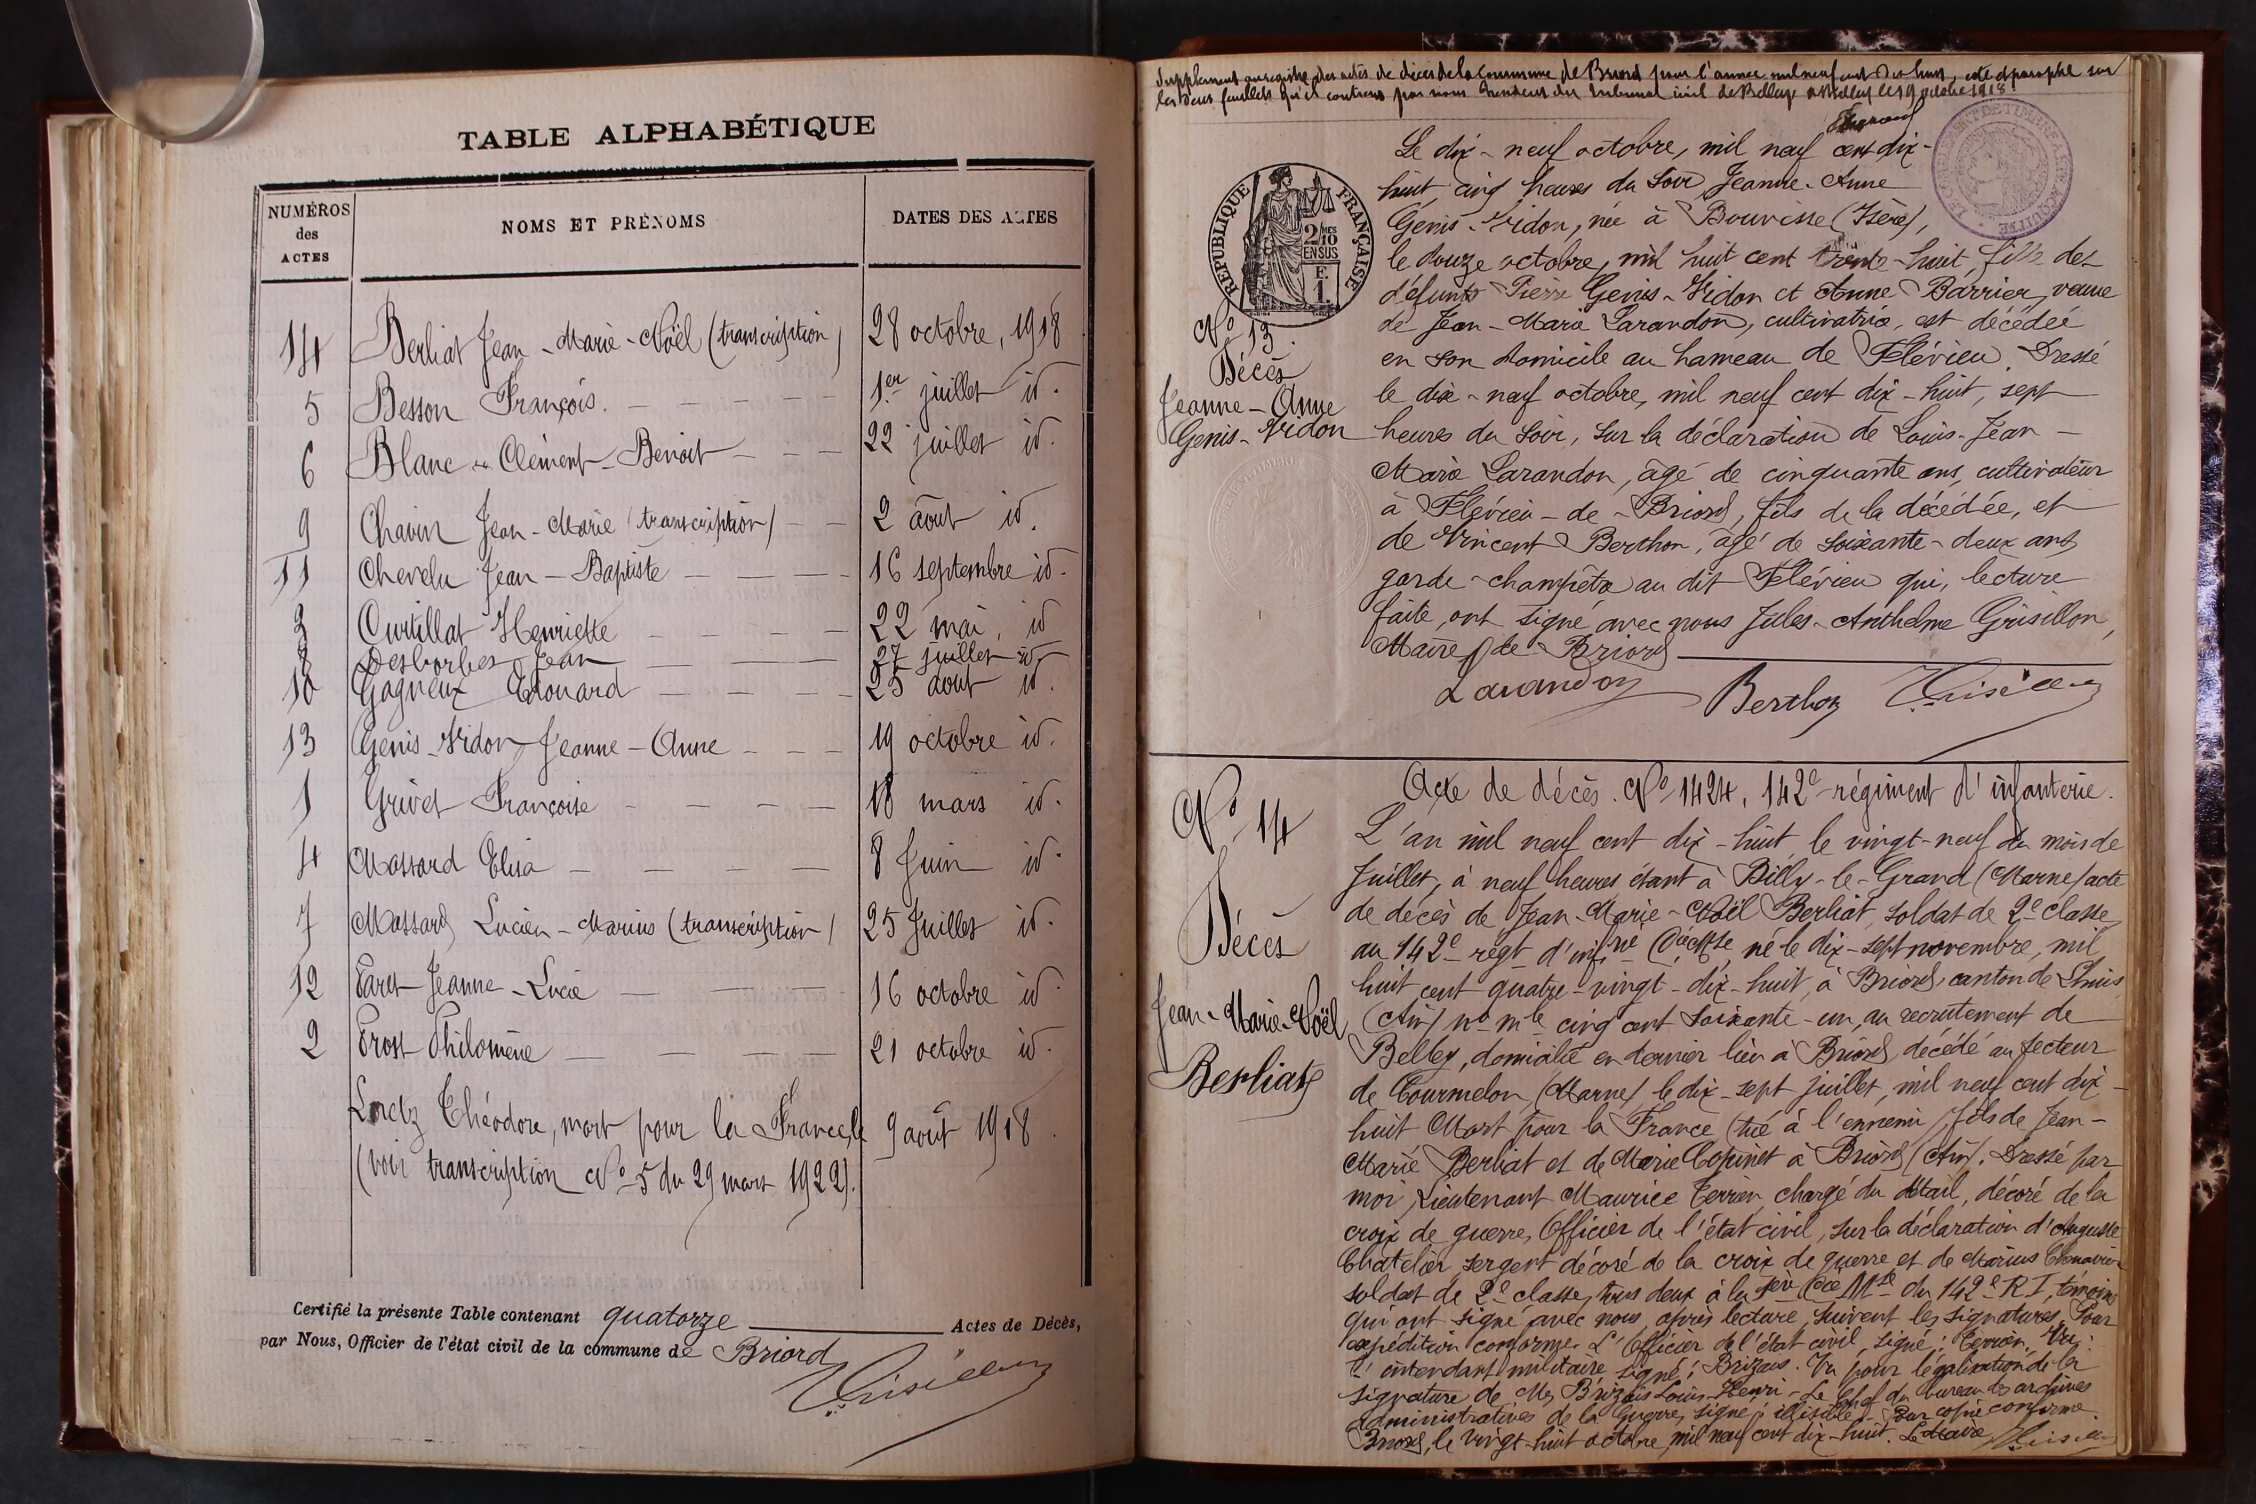 TABLE ALPHABÉTIQUE
NUMÉROS des ACTES
NOMS ET PRÉNOMS
DATES DES ACTES
14 Berliat Jean-Marie-Noël (transcription) 28 octobre, 1918
5 Besson François. 1er juillet id.
6 Blanc Clément-Benoit 22 juillet id.
9 Chavin Jean-Marie (transcription) 2 août id.
11 Chevelu Jean-Baptiste 16 septembre id.
3 Curtillat Henriette 22 mai, id
8 Desbordes Jean 27 juillet id.
10 Gagneux Edouard 25 août id.
13 Genis-Vidon Jeanne-Anne 19 octobre id.
1 Grivet Françoise 18 mars id.
4 Massard Elisa 8 Juin id.
7 Massard Lucien-Marius (transcription) 25 Juillet id.
12 Paret Jeanne-Lucie 16 octobre id.
2 Prost Philomène 21 octobre id.
Loretz Théodore, mort pour la France, le 9 août 1918.
(voir transcription No 5 du 29 mars 1922).
Certifié la présente Table contenant quatorze Actes de Décès,
par Nous, Officier de l'état civil de la commune de Briord
Supplément au registre des actes de décès de la Commune de Briord pour l'année mil neuf cent dix huit, coté et paraphé sur
les deux feuillets qu'il contient par nous Président du Tribunal civil de Belley à Belley le 19 octobre 1918
RÉPUBLIQUE FRANÇAISE
2/10 EN SUS
F. 1.
No 13.
Décès
Jeanne-Anne
Genis-Vidon
Le dix-neuf octobre, mil neuf cent dix-
huit, cinq heures du soir Jeanne-Anne
Genis-Vidon, née à Bouvesse (Isère),
le douze octobre, mil huit cent trente-huit, fille des
défunts Pierre Genis-Vidon et Anne Barrier, veuve
de Jean-Marie Larandon, cultivatrice, est décédée
en son domicile au hameau de Flévieu. Dressé
le dix-neuf octobre, mil neuf cent dix-huit, sept
heures du soir, sur la déclaration de Louis-Jean-
Marie Larandon, âgé de cinquante ans, cultivateur
à Flévieu-de-Briord, fils de la décédée, et
de Vincent Berthon, âgé de soixante-deux ans
garde-champêtre au dit Flévieu qui, lecture
faite, ont signé avec nous Jules-Anthelme Grisillon,
Maire de Briord
Larandon Berthon Grisillon
No 14
Décès
Jean-Marie-Noël
Berliat
Acte de décès. No 1424, 142e régiment d'infanterie.
L'an mil neuf cent dix-huit, le vingt-neuf du mois de
Juillet, à neuf heures étant à Billy-le-Grand (Marne) acte
de décès de Jean-Marie-Noël Berliat, soldat de 2e classe
au 142e régt d'infrie né le dix-sept novembre, mil
huit cent quatre-vingt-dix-huit, à Briord, canton de Lhuis
(Ain) no mle cinq cent soixante-un, au recrutement de
Belley, domicilié en dernier lieu à Briord, décédé au secteur
de Courmelon, (Marne) le dix-sept juillet, mil neuf cent dix-
huit Mort pour la France (tué à l'ennemi) fils de Jean-
Marie Berliat et de Marie Copinet à Briord (Ain). Dressé par
moi, Lieutenant Maurice Terrien, chargé du détail, décoré de la
croix de guerre, Officier de l'état civil, sur la déclaration d'Auguste
Chatelier, sergent décoré de la croix de guerre et de Marius
soldat de 2e classe, tous deux à la du 142e R I, témoins
qui ont signé avec nous après lecture, suivent les signatures. Pour
expédition conforme. L'Officier de l'état civil, signé: Terrien. Vu:
L'intendant militaire signé: Brizais. Vu pour légalisation de la
signature de Mr Brizais Louis-Henri - Le Chef du bureau des archives
administratives de la Guerre, signé: illisible. Pour copie conforme.
Briord, le vingt-huit octobre, mil neuf cent dix-huit. Le Maire